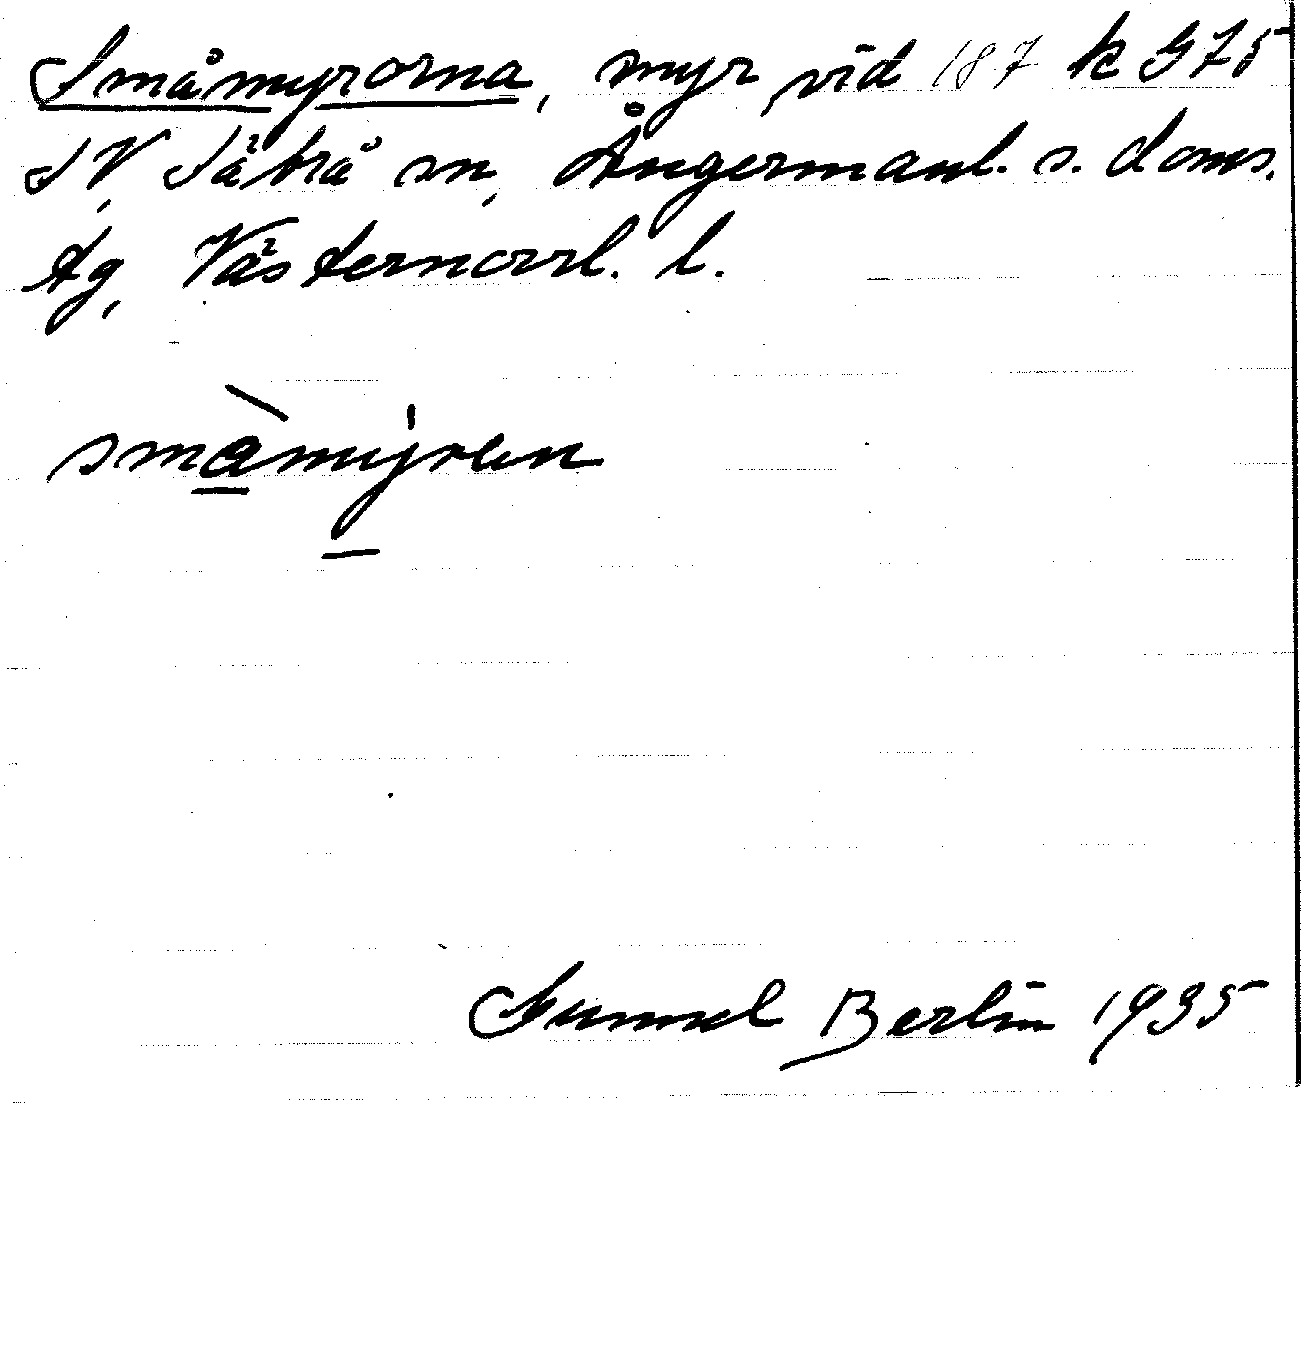 Småmyrorna, myr vid 187 k G75
SV, Säbrå sn, Ångermanl. s. doms.
tg, Västernorrl. l.
småmyren
Gunnel Berlin 1935